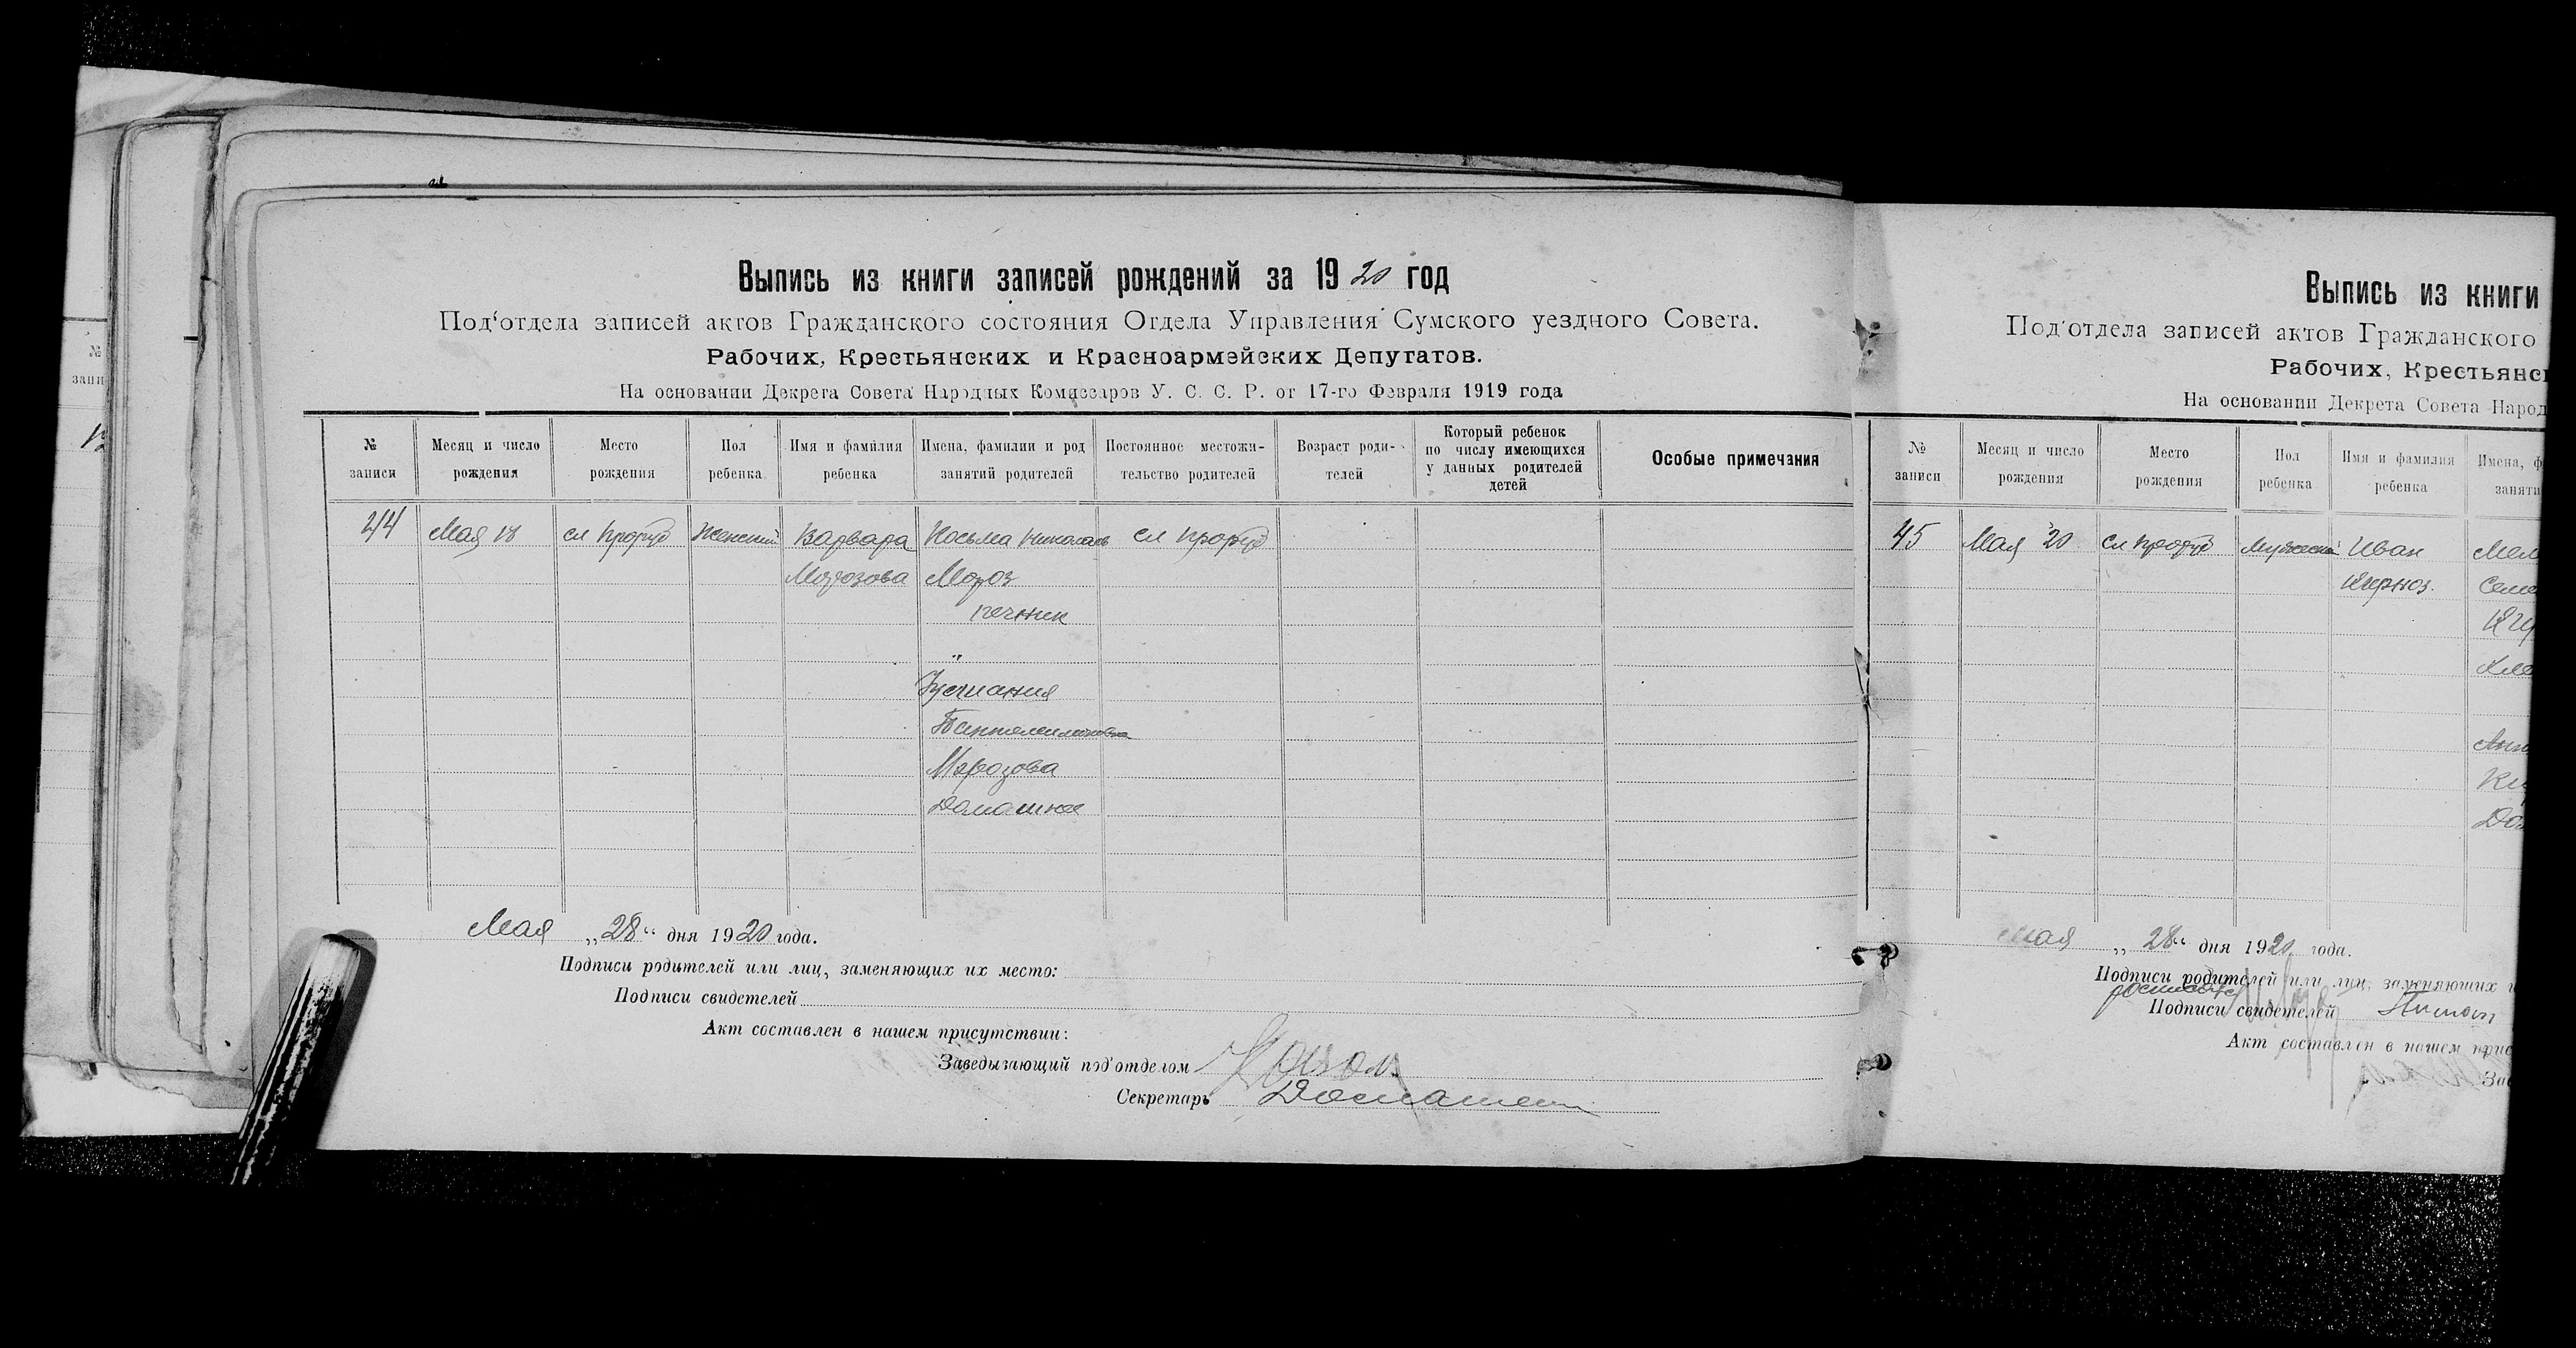 Выпись из книги записей рождений за 1920 год
Под‘отдела записей актов Гражданского состояния Отдела Управления Сумского уездного Совета.
Рабочих, Крестьянских и Красноармейских Депутатов.
На основании Декрета Совета Народных Комиссаров У. С. С. Р. от 17-го Февраля 1919 года
№ записи
Месяц и число рождения
Место рождения
Пол ребенка
Имя и фамилия ребенка
Имена, фамилии и род занятий родителей
Постоянное местожительство родителей
Возраст родителей
Который ребенок по числу имеющихся у данных родителей детей
Особые примечания
44 Мая 18 сл Проруб Женский Варвара Косьма Николаев сл Проруб
Морозова Мороз
печник
"
Пантелеимоновна
Морозова
Домашнее
Мая „28“ дня 1920 года.
Подписи родителей или лиц, заменяющих их место:
Подписи свидетелей
Акт составлен в нашем присутствии:
Заведывающий под‘отделом
Секретарь
Выпись из книги
Под‘отдела записей актов Гражданского
Рабочих, Крестьянс
На основании Декрета Совета Народ
№ записи
Месяц и число рождения
Место рождения
Пол ребенка
Имя и фамилия ребенка
Имена, ф
заняти
45 Мая 20 сл Проруб Мужеский Иван
Семе
Дом
Мая „28“ дня 1920 года.
Подписи родителей или лиц, заменяющих и
Подписи свидетелей
Акт составлен в нашем прис
Зав
№
запи